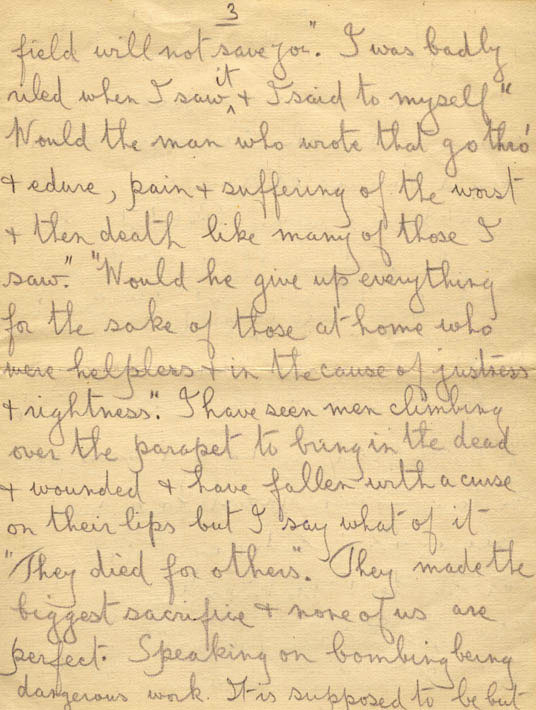 3
field will not save you". I was badly
riled when I saw it & I said to myself "
Would the man who wrote that go thro'
& edure, pain & suffering of the worst
& then death like many of those I
saw." "Would he give up everything
for the sake of those at home who
were helpless & in the cause of justness
& rightness". I have seen men climbing
over the parapet to bring in the dead
& wounded & have fallen with a curse
on their lips but I say what of it
"They died for others". They made the
biggest sacrifice & none of us are
perfect. Speaking on bombing being
dangerous work. It is supposed to be but